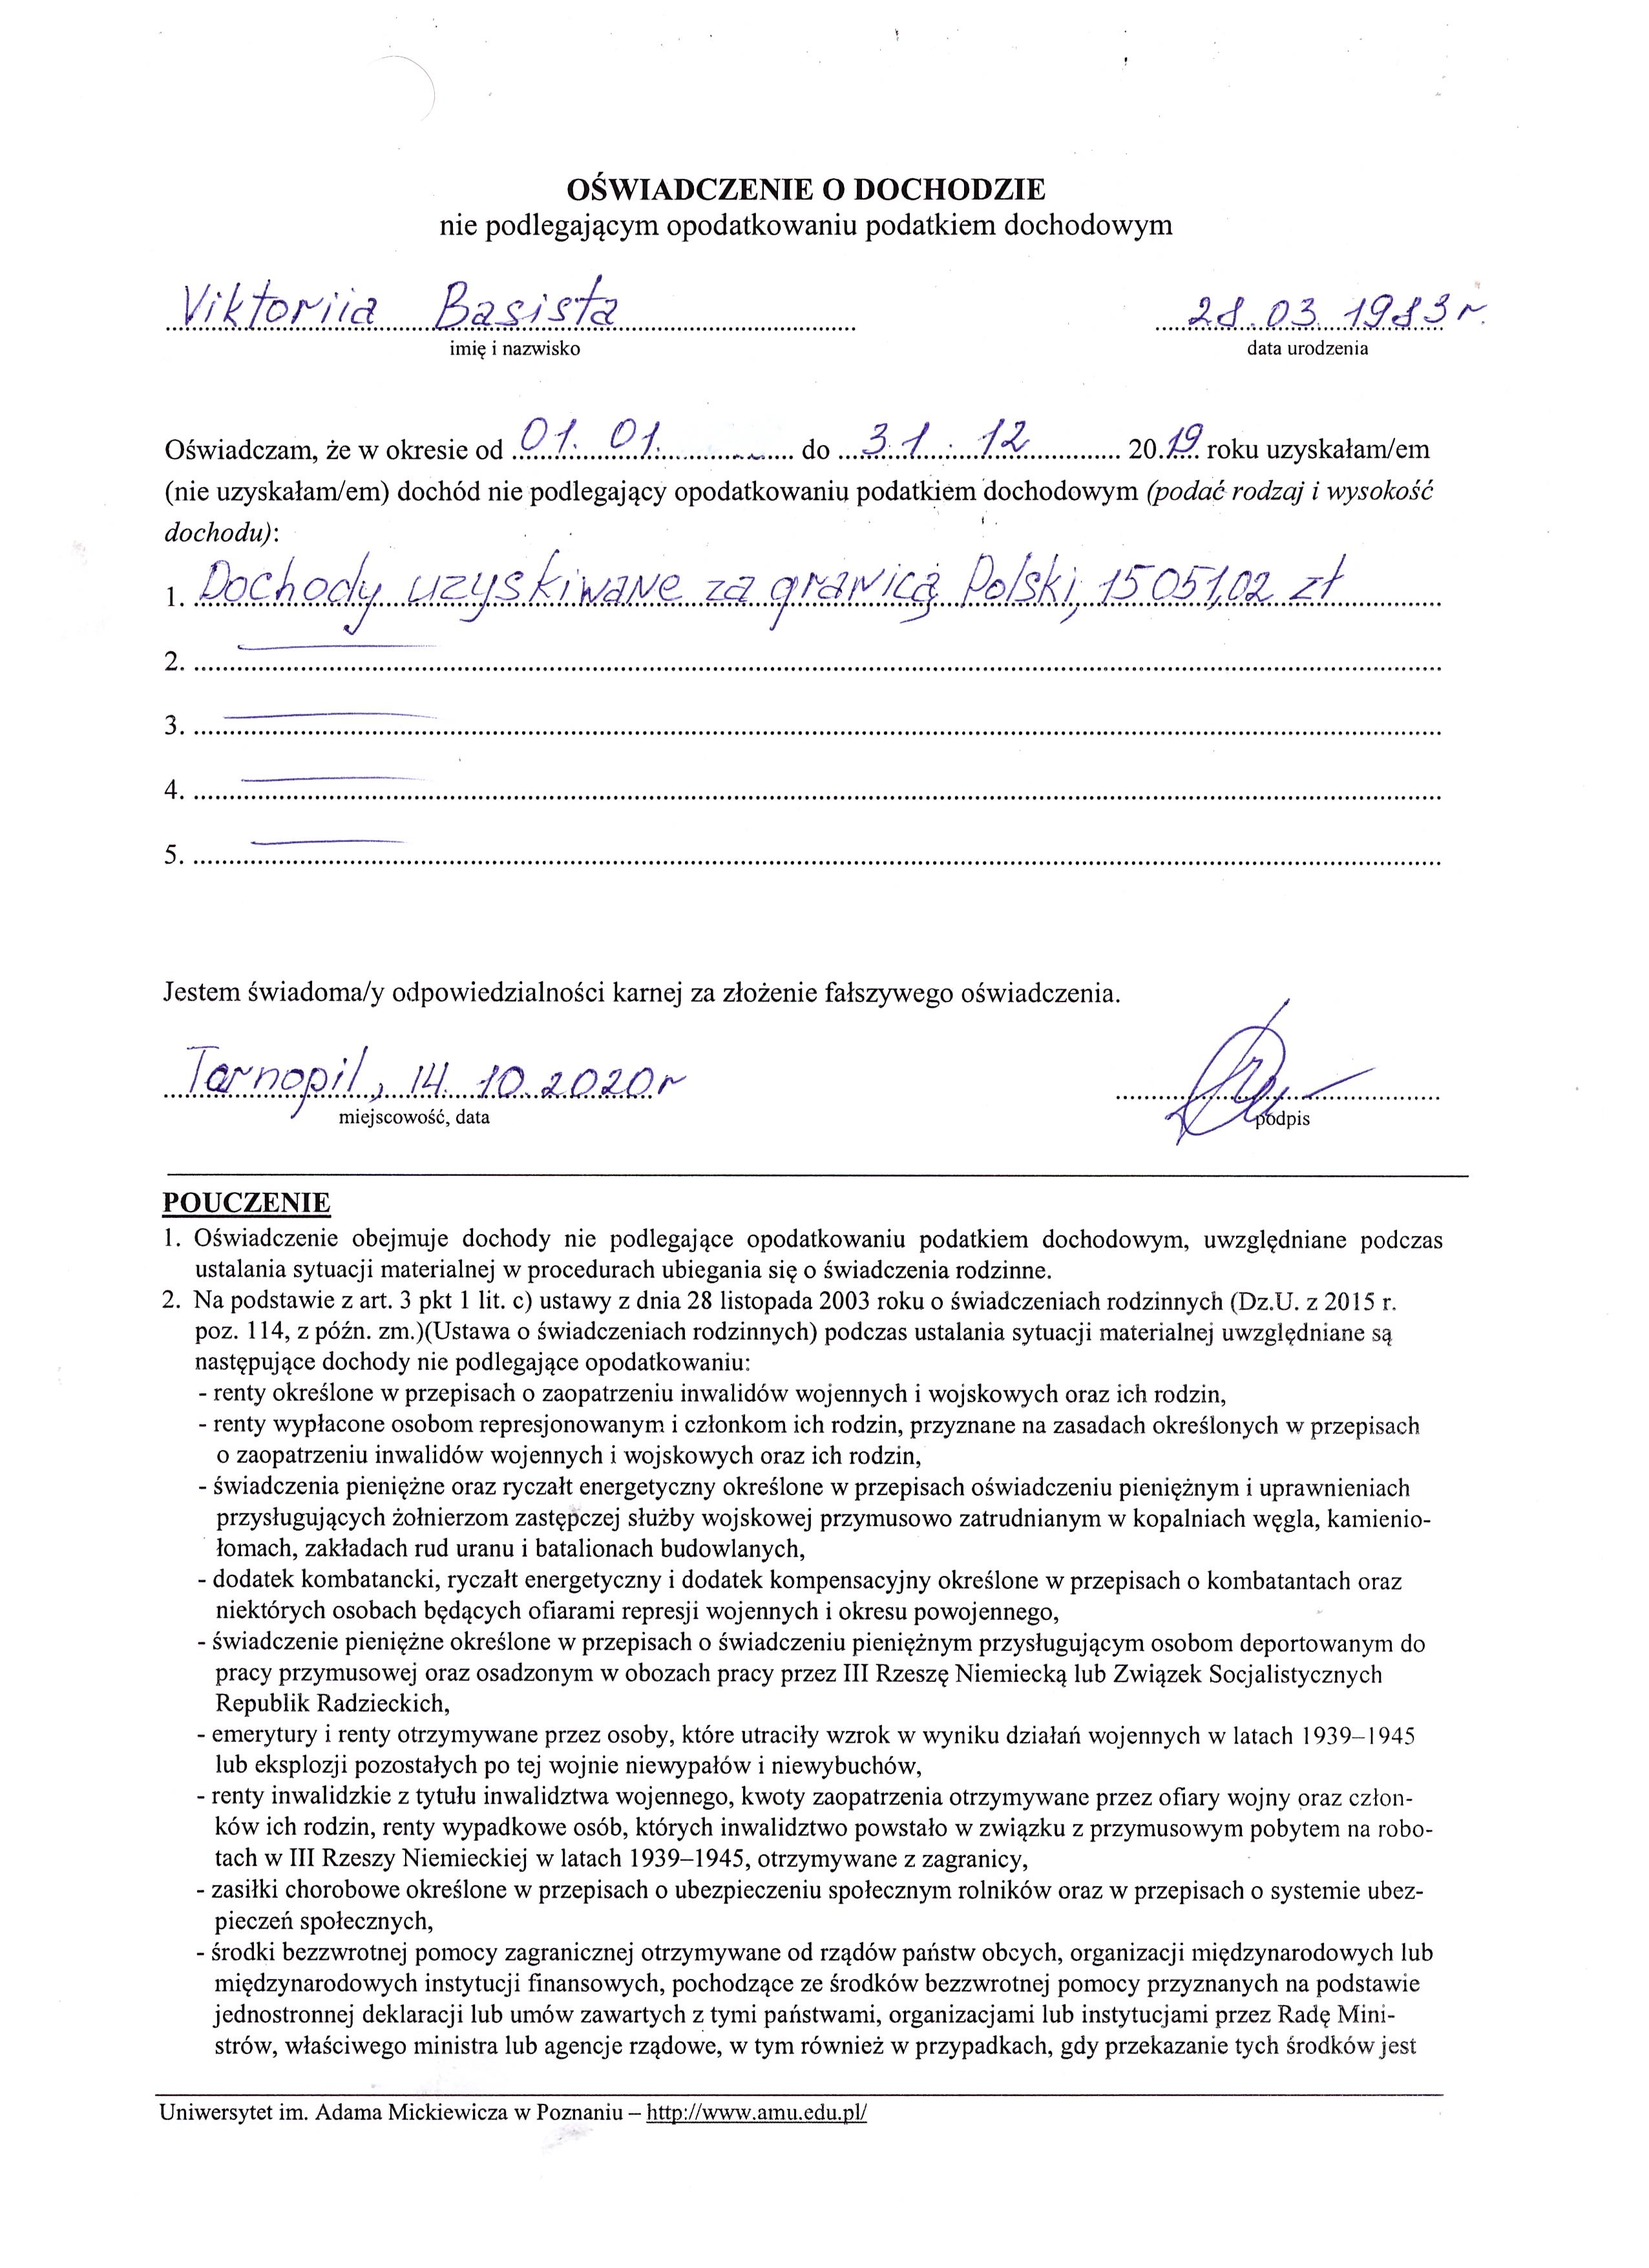 OŚWIADCZENIE O DOCHODZIE
nie podlegającym opodatkowaniu podatkiem dochodowym
Viktoriia Basista 28.03.1983 r.
imię i nazwisko data urodzenia
Oświadczam, że w okresie od 01.01. do 31.12 2019 roku uzyskałam/em
(nie uzyskałam/em) dochód nie podlegający opodatkowaniu podatkiem dochodowym (podać rodzaj i wysokość
dochodu):
1. Dochody uzyskiwane za granicą Polski, 15051,02 zł
2.
3.
4.
5.
Jestem świadoma/y odpowiedzialności karnej za złożenie fałszywego oświadczenia.
Tarnopil, 14.10.2020r
miejscowość, data podpis
POUCZENIE
1. Oświadczenie obejmuje dochody nie podlegające opodatkowaniu podatkiem dochodowym, uwzględniane podczas
ustalania sytuacji materialnej w procedurach ubiegania się o świadczenia rodzinne.
2. Na podstawie z art. 3 pkt 1 lit. c) ustawy z dnia 28 listopada 2003 roku o świadczeniach rodzinnych (Dz.U. z 2015 r.
poz. 114, z późn. zm.)(Ustawa o świadczeniach rodzinnych) podczas ustalania sytuacji materialnej uwzględniane są
następujące dochody nie podlegające opodatkowaniu:
- renty określone w przepisach o zaopatrzeniu inwalidów wojennych i wojskowych oraz ich rodzin,
- renty wypłacone osobom represjonowanym i członkom ich rodzin, przyznane na zasadach określonych w przepisach
o zaopatrzeniu inwalidów wojennych i wojskowych oraz ich rodzin,
- świadczenia pieniężne oraz ryczałt energetyczny określone w przepisach oświadczeniu pieniężnym i uprawnieniach
przysługujących żołnierzom zastępczej służby wojskowej przymusowo zatrudnianym w kopalniach węgla, kamienio-
łomach, zakładach rud uranu i batalionach budowlanych,
- dodatek kombatancki, ryczałt energetyczny i dodatek kompensacyjny określone w przepisach o kombatantach oraz
niektórych osobach będących ofiarami represji wojennych i okresu powojennego,
- świadczenie pieniężne określone w przepisach o świadczeniu pieniężnym przysługującym osobom deportowanym do
pracy przymusowej oraz osadzonym w obozach pracy przez III Rzeszę Niemiecką lub Związek Socjalistycznych
Republik Radzieckich,
- emerytury i renty otrzymywane przez osoby, które utraciły wzrok w wyniku działań wojennych w latach 1939–1945
lub eksplozji pozostałych po tej wojnie niewypałów i niewybuchów,
- renty inwalidzkie z tytułu inwalidztwa wojennego, kwoty zaopatrzenia otrzymywane przez ofiary wojny oraz człon-
ków ich rodzin, renty wypadkowe osób, których inwalidztwo powstało w związku z przymusowym pobytem na robo-
tach w III Rzeszy Niemieckiej w latach 1939–1945, otrzymywane z zagranicy,
- zasiłki chorobowe określone w przepisach o ubezpieczeniu społecznym rolników oraz w przepisach o systemie ubez-
pieczeń społecznych,
- środki bezzwrotnej pomocy zagranicznej otrzymywane od rządów państw obcych, organizacji międzynarodowych lub
międzynarodowych instytucji finansowych, pochodzące ze środków bezzwrotnej pomocy przyznanych na podstawie
jednostronnej deklaracji lub umów zawartych z tymi państwami, organizacjami lub instytucjami przez Radę Mini-
strów, właściwego ministra lub agencje rządowe, w tym również w przypadkach, gdy przekazanie tych środków jest
Uniwersytet im. Adama Mickiewicza w Poznaniu – http://www.amu.edu.pl/